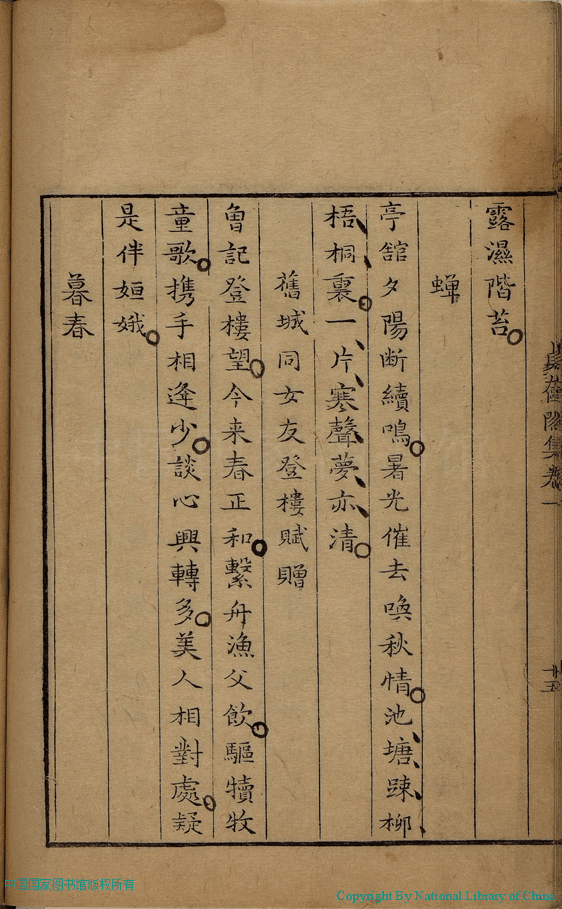 集卷一
十五
露濕階苔
蟬
亭舘夕陽断續鳴暑光催去喚秋情池塘踈柳
梧桐裏一片寒聲夢亦清
舊城同女友登樓賦贈
曾記登樓望今来春正和繫舟漁父飲驅犢牧
童歌携手相逢少談心興轉多美人相對處疑
是伴姮娥
暮春
中国国家图书馆版权所有
Copyright By National Library of China